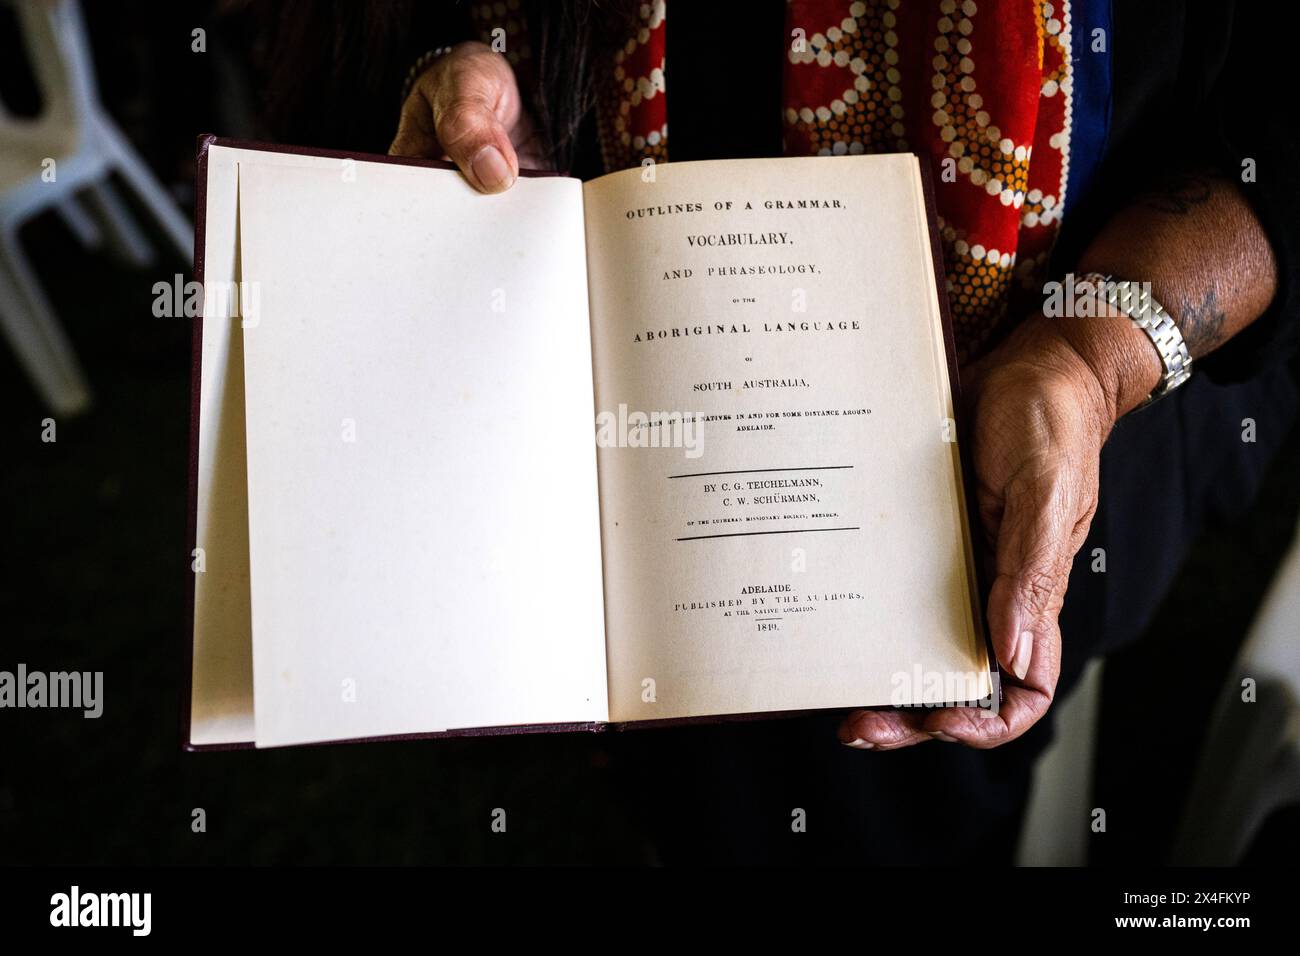 OUTLINES OF A GRAMMAR,
VOCABULARY,
AND PHRASEOLOGY,
OF THE
ABORIGINAL LANGUAGE
OF
SOUTH AUSTRALIA,
SPOKEN BY THE NATIVES IN AND FOR SOME DISTANCE AROUND
ADELAIDE.
BY C. G. TEICHELMANN,
C. W. SCHÜRMANN,
OF THE LUTHERAN MISSIONARY SOCIETY, DRESDEN.
ADELAIDE.
PUBLISHED BY THE AUTHORS,
AT THE NATIVE LOCATION.
1840.
alamy
alamy
Image ID: 2X4FKYP
www.alamy.com